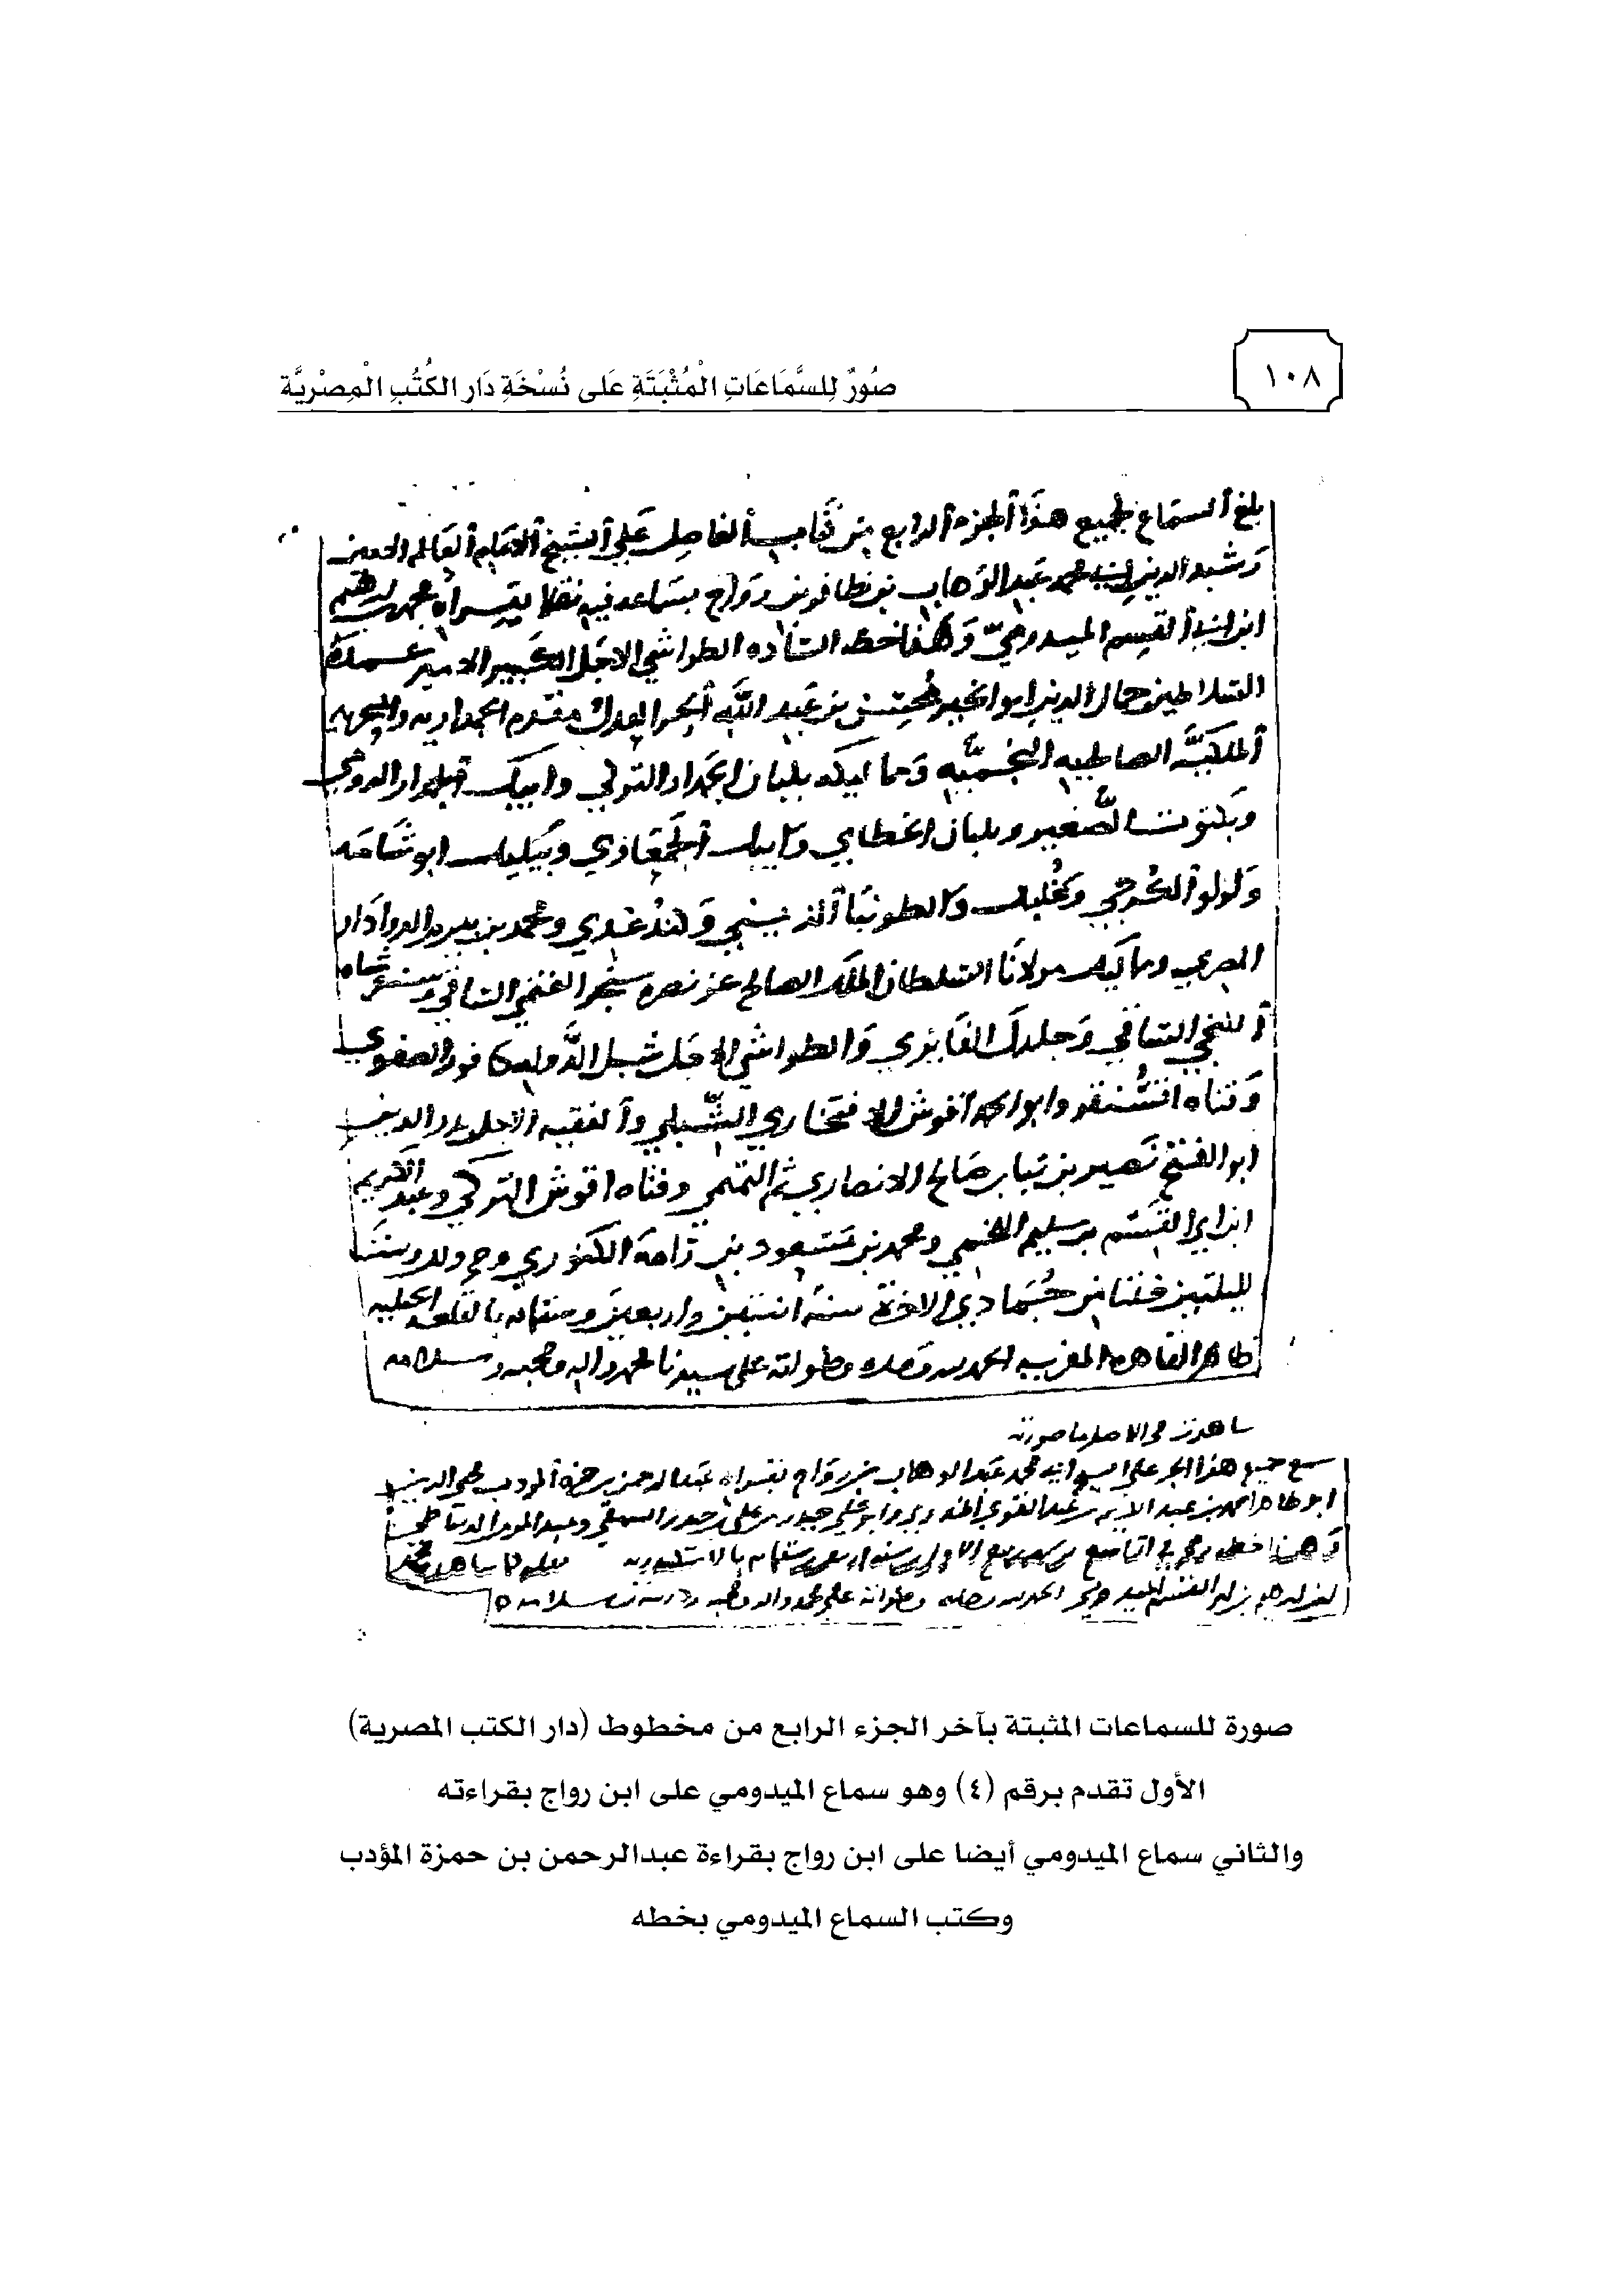 ١٠٨
صُوَرٌ لِلسَّمَاعَاتِ الْمُثْبَتَةِ عَلى نُسْخَةِ دَارِ الكُتُبِ الْمِصْرِيَّة
بلغ السماع لجميع هذا الجزء الرابع من كتاب الفاصل على الشيخ الامام العالم
رشيد الدين ابي محمد عبد الوهاب بن ظافر بن رواج بسماعه فيه نقلا بقراءة محمد بن ابرهيم
ابن ابي القسم الميدومي وهذا خطه السادة الطواشي الاجل الكبير الامير عمدة
السلاطين جمال الدين ابو الخير محسن بن عبد الله مقدم الجمدارية والبحرية
الملكية الصالحية النجمية ومماليكه بلبان الجمدار التركي وايبك الرومي
وبكتوت الصغير وبلبان الخطايي وايبك وبيليك ابو شامه
ولولو الكرجي والطونبا الزينبي وكندغدي ومحمد بن الدوادار
المصري ومماليك مولانا السلطان الملك الصالح عز نصره سنجر الساقي وسنقر شاه
الساقي وجلدك الفايزي والطواشي الاجل شبل الدولة كافور الصفوي
وفتاه اقسنقر وابو اقوش الافتخاري الشبلي والفقيه الاجل بدر الدين
ابو الفتح نصير بن نبا بن صالح الانصاري ثم وفتاه اقوش التركي وعبد الكريم
ابن ابي القسم بن سليم ومحمد بن مسعود بن وثبت
لليلتين خلتا من جمادي الاخرة سنة اثنتين واربعين وستمائة بالقلعة
ظاهر القاهرة المعزية الحمد لله وحده وصلواته على سيدنا محمد واله وصحبه وسلامه
شاهدت في الاصل ما صورته
سمع جميع هذا الجزء على الشيخ ابي محمد عبد الوهاب بن رواج بقراءة عبد الرحمن بن حمزة المودب
ابو طاهر احمد بن عبد القوي وابو علي حيدر بن علي
وهذا خطه في التاسع من شهر ربيع الاول سنة وستمائة بالاسكندرية نقله كما شاهده محمد
ابن ابرهيم بن ابي القسم الميدومي الحمد لله وحده وصلواته على محمد واله وصحبه وسلامه
صورة للسماعات المثبتة بآخر الجزء الرابع من مخطوط (دار الكتب المصرية)
الأول تقدم برقم (٤) وهو سماع الميدومي على ابن رواج بقراءته
والثاني سماع الميدومي أيضا على ابن رواج بقراءة عبدالرحمن بن حمزة المؤدب
وكتب السماع الميدومي بخطه